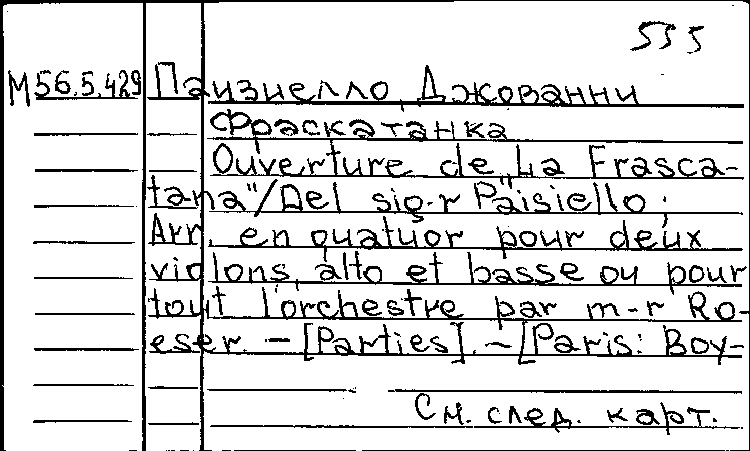 535
М56.5.429 Паизиелло, Джованни
Фраскатанка
Ouverture de „La Frasca-
tana"/Del sig-r Paisiello;
Arr. en quatuor pour deux
violons, alto et basse ou pour
tout l'orchestre par m-r Ro-
eser. – [Parties]. – [Paris: Boy-
См. след. карт.